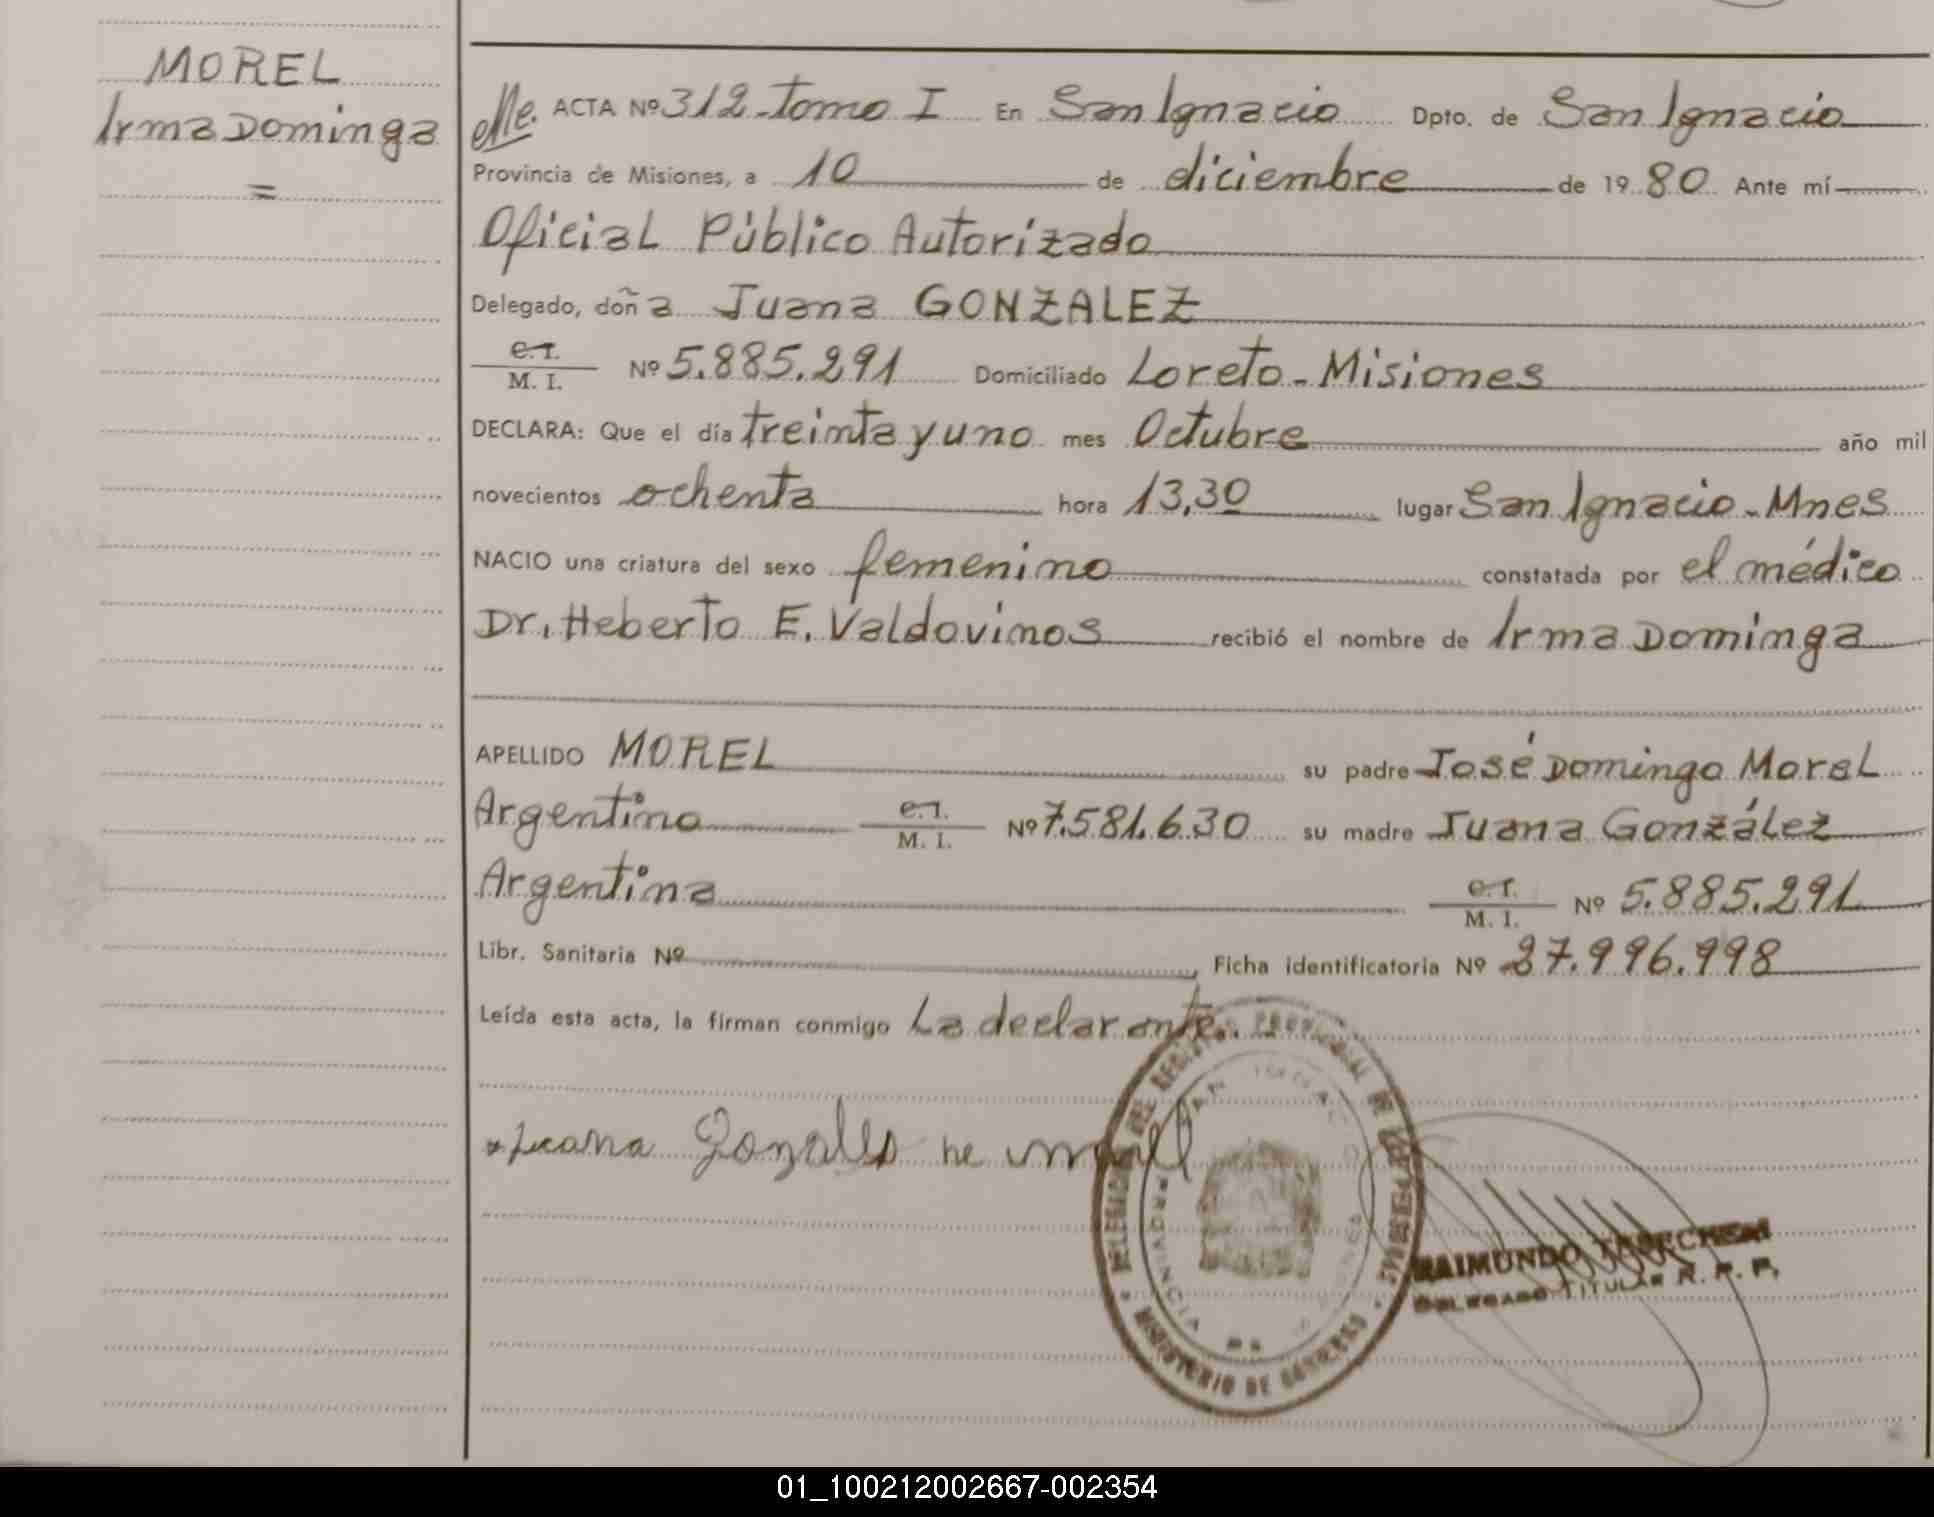 MOREL
Irma Dominga
=
ACTA Nº 312-Tomo I En San Ignacio Dpto. de San Ignacio
Provincia de Misiones, a 10 de diciembre de 1980 Ante mí
Oficial Público Autorizado
Delegado, doña Juana GONZALEZ
C.I.
M. I. Nº 5.885.291 Domiciliado Loreto - Misiones
DECLARA: Que el día treinta y uno mes Octubre año mil
novecientos ochenta hora 13,30 lugar San Ignacio - Mnes
NACIO una criatura del sexo femenino constatada por el médico
Dr. Heberto E. Valdovinos recibió el nombre de Irma Dominga
APELLIDO MOREL su padre José Domingo Morel
Argentino C.I. M. I. Nº 7.581.630 su madre Juana González
Argentina C.I. M. I. Nº 5.885.291
Libr. Sanitaria Nº Ficha identificatoria Nº 27.996.998
Leída esta acta, la firman conmigo La declarante.
Juana Gonzales de
DELEGACION DEL REGISTRO PROVINCIAL DE LAS PERSONAS
MINISTERIO DE GOBIERNO
SAN IGNACIO
PROVINCIA DE MISIONES
RAIMUNDO
DELEGADO TITULAR R. P. P.
01_100212002667-002354